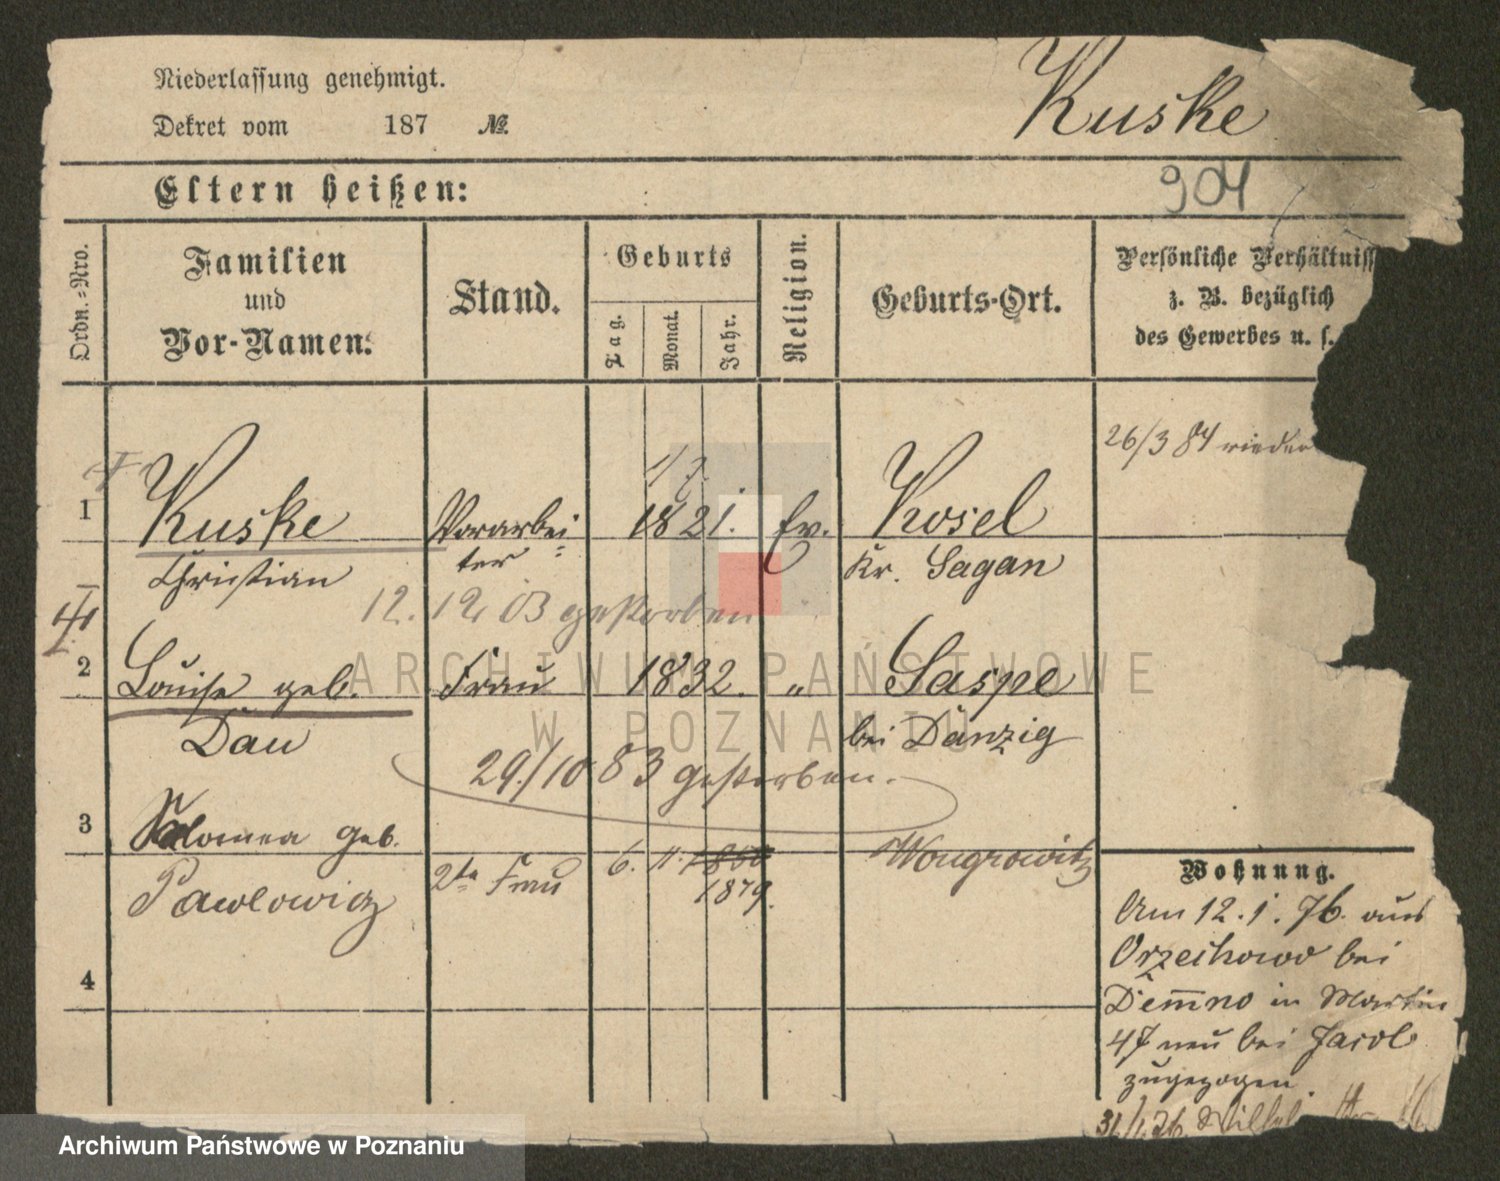 Niederlassung genehmigt.
Kuske
Dekret vom 187 №
904
Eltern heißen:
Ordn.-Nro.
Familien
und
Vor-Namen.
Stand.
Geburts
Tag.
Monat.
Jahr.
Religion.
Geburts-Ort.
Persönliche Verhältniss
z. B. bezüglich
des Gewerbes u. s.
26/3 84 wieder
1 Kuske Vorarbei- 1821. Ev. Kosel
Christian ter Kr. Sagan
12. 12 03 gestorben
2 Louise geb. Frau 1832. " Saspe
Dau bei Danzig
29./10 83 gestorben.
3 Salomea geb.
Pawlowicz 2te Frau 6. 11. 1850 Wongrowitz
1879.
4
Wohnung.
Am 12. 1. 76. aus
Orzechowo bei
Demno in Martin
47 neu bei Jacob
zugezogen.
31/1.76.
ARCHIWUM PAŃSTWOWE
W POZNANIU
Archiwum Państwowe w Poznaniu